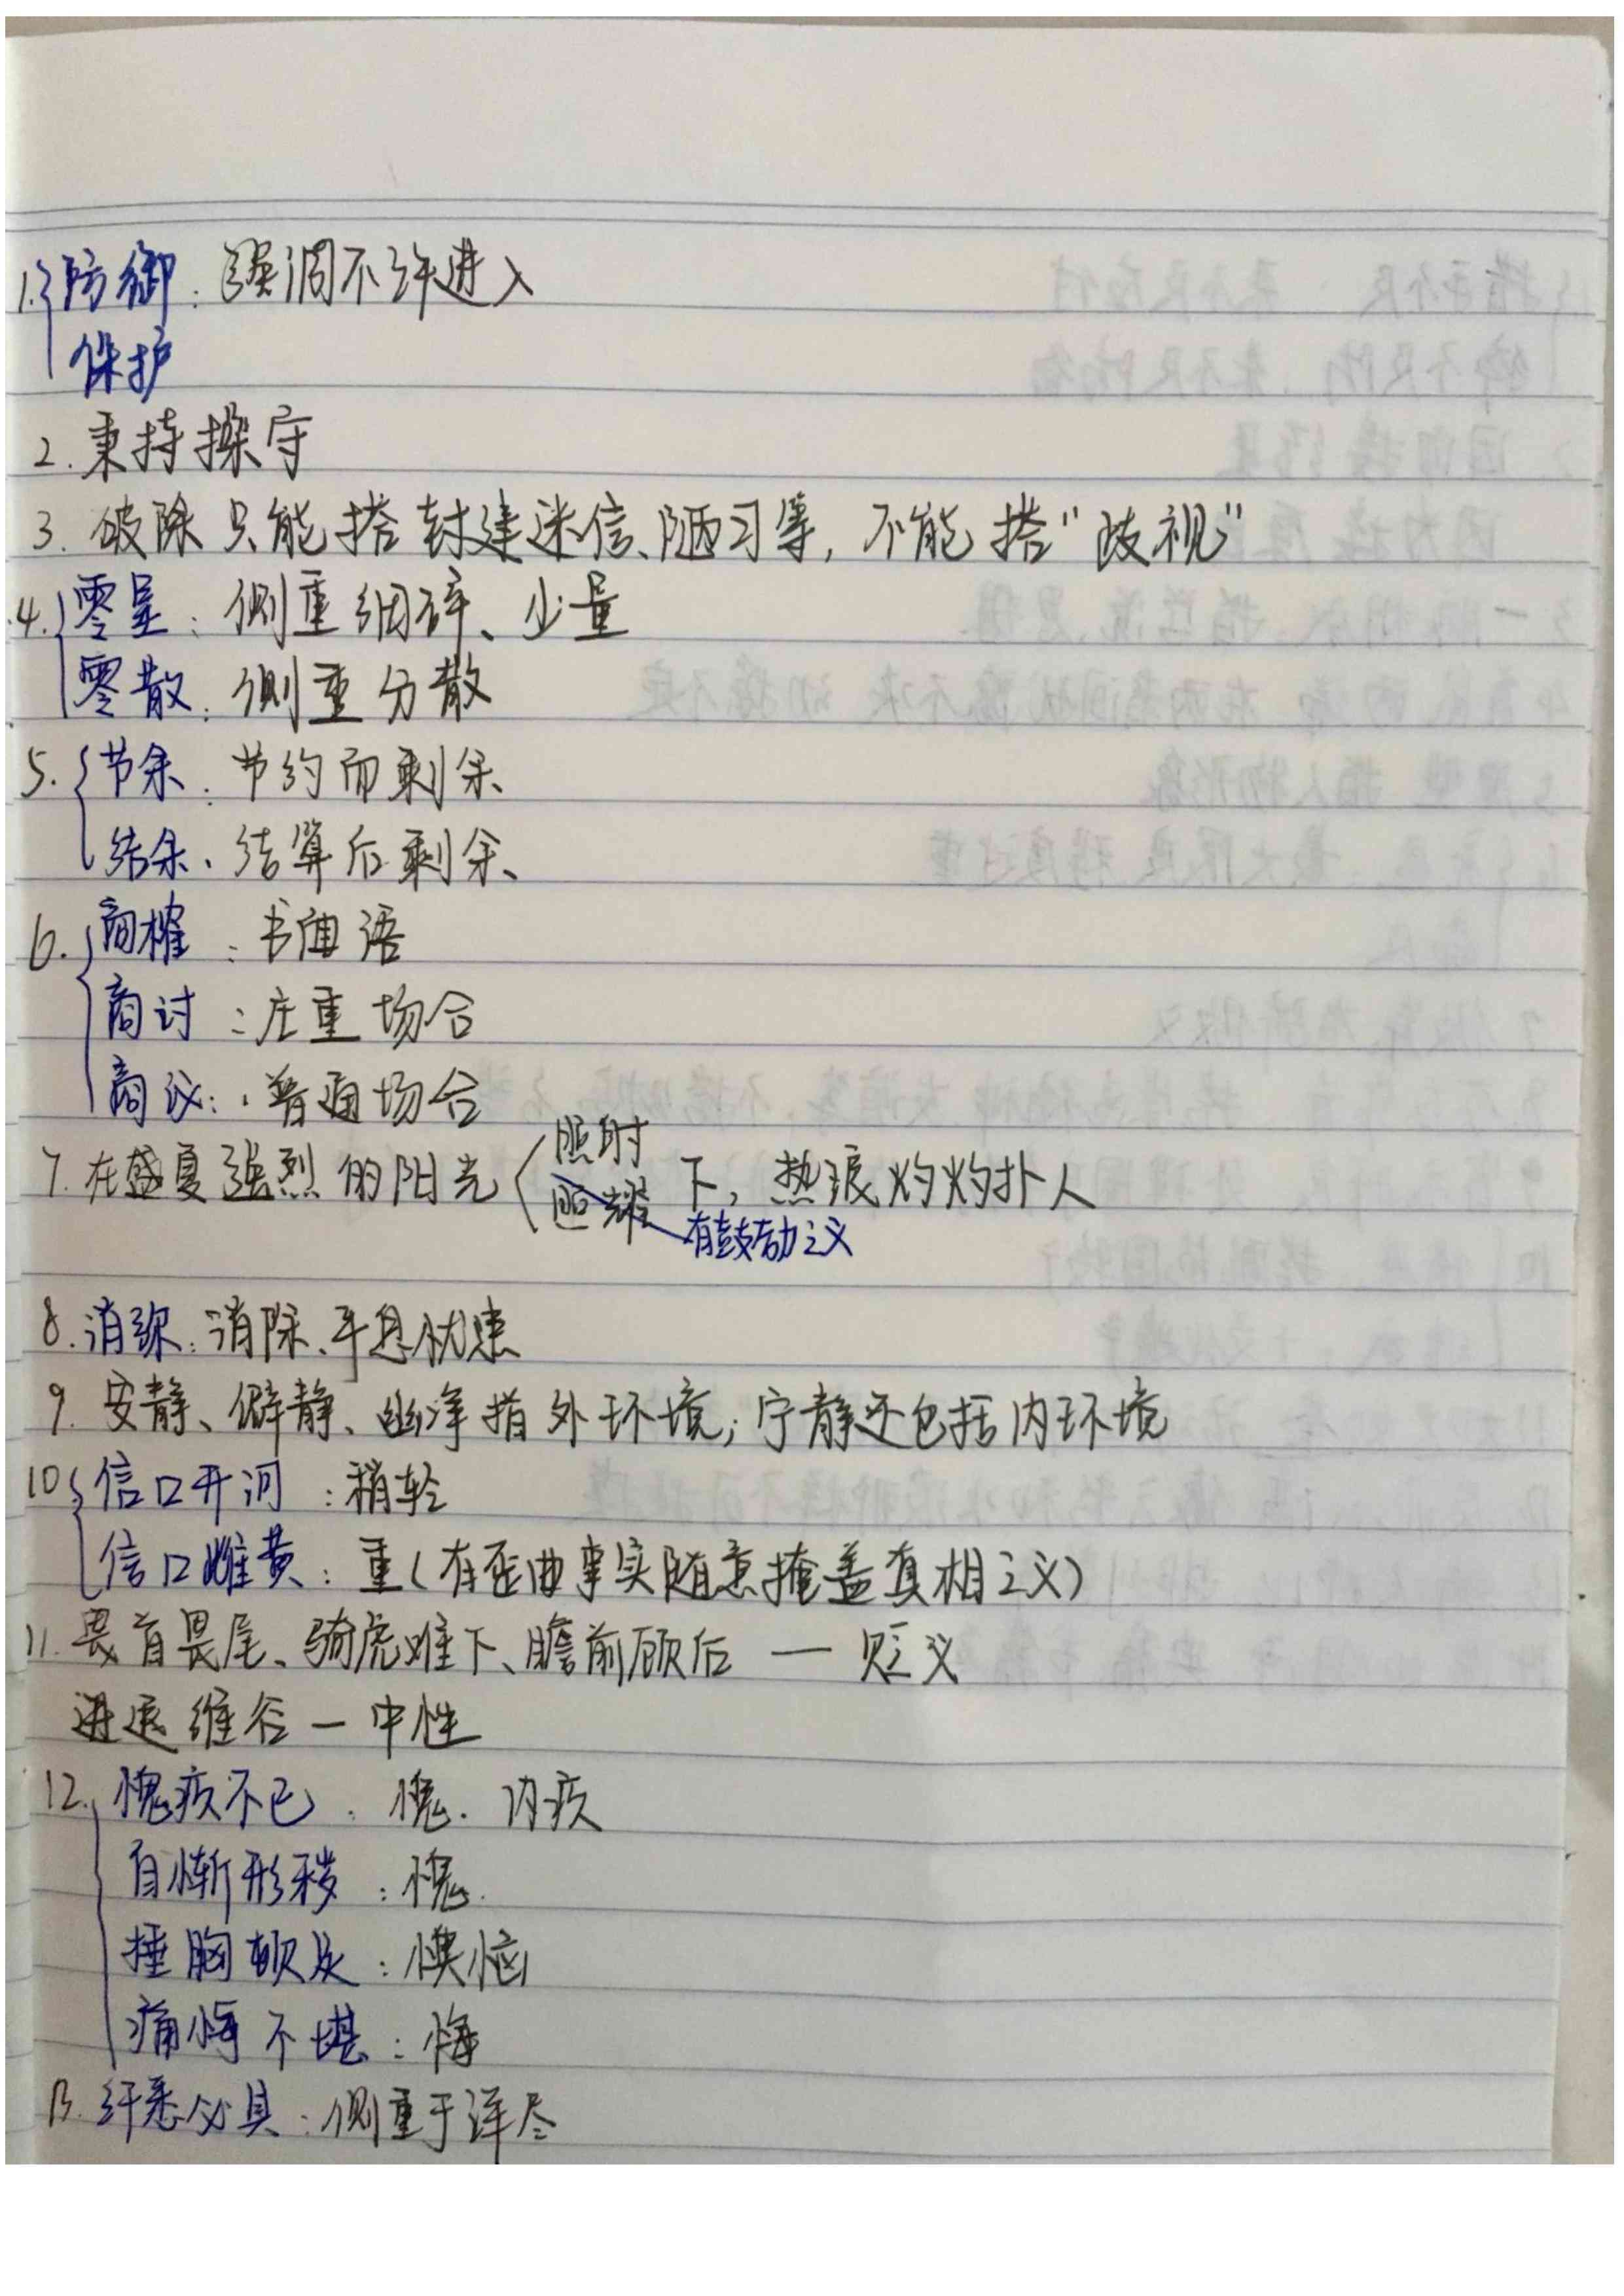 1. 防御：强调不许进入
保护
2. 秉持操守
3. 破除只能搭封建迷信、陋习等，不能搭“歧视”
4. 零星：侧重细碎、少量
零散：侧重分散
5. 节余：节约而剩余、
结余、结算后剩余、
6. 商榷：书面语
商讨：庄重场合
商议：普通场合
7. 在盛夏强烈的阳光 照射 下，热浪灼灼扑人
照耀 有鼓励之义
8. 消弥：消除、平息忧患
9. 安静、僻静、幽净指外环境；宁静还包括内环境
10 信口开河：稍轻
信口雌黄：重（有歪曲事实随意掩盖真相之义）
11. 畏首畏尾、骑虎难下、瞻前顾后 — 贬义
进退维谷 — 中性
12. 愧疚不已：愧. 内疚
自惭形秽：愧.
捶胸顿足：懊恼
痛悔不堪：悔
13. 纤悉必具：侧重于详尽